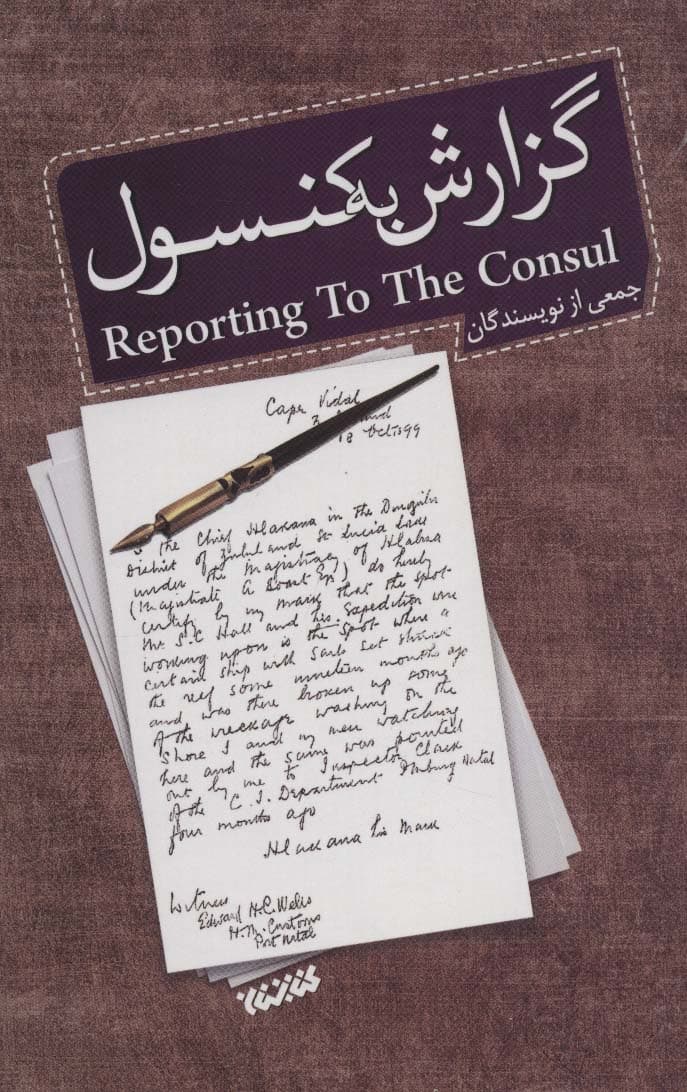 گزارش به کنسول
Reporting To The Consul
جمعی از نویسندگان
Cape Vidal
18 Oct 99
I the Chief Hlakana in the
District of Zululand and St Lucia
under the Magistracy of Hlabisa
(Magistrate A Boast Esq) do hereby
certify by my mark that the spot
Mr. S.C Hall and his Expedition are
working upon is the spot where a
certain ship with sails set struck
the reef some nineteen months ago
and was there broken up some
of the wreckage washing on the
shore I and my men watching
here and the same was pointed
out by me to Inspector Clark
of the C. I. Department Natal
four months ago
Hlakana his Mark
Witness
Edward H.C. Wells
H.M. Customs
Port Natal
کتابستان